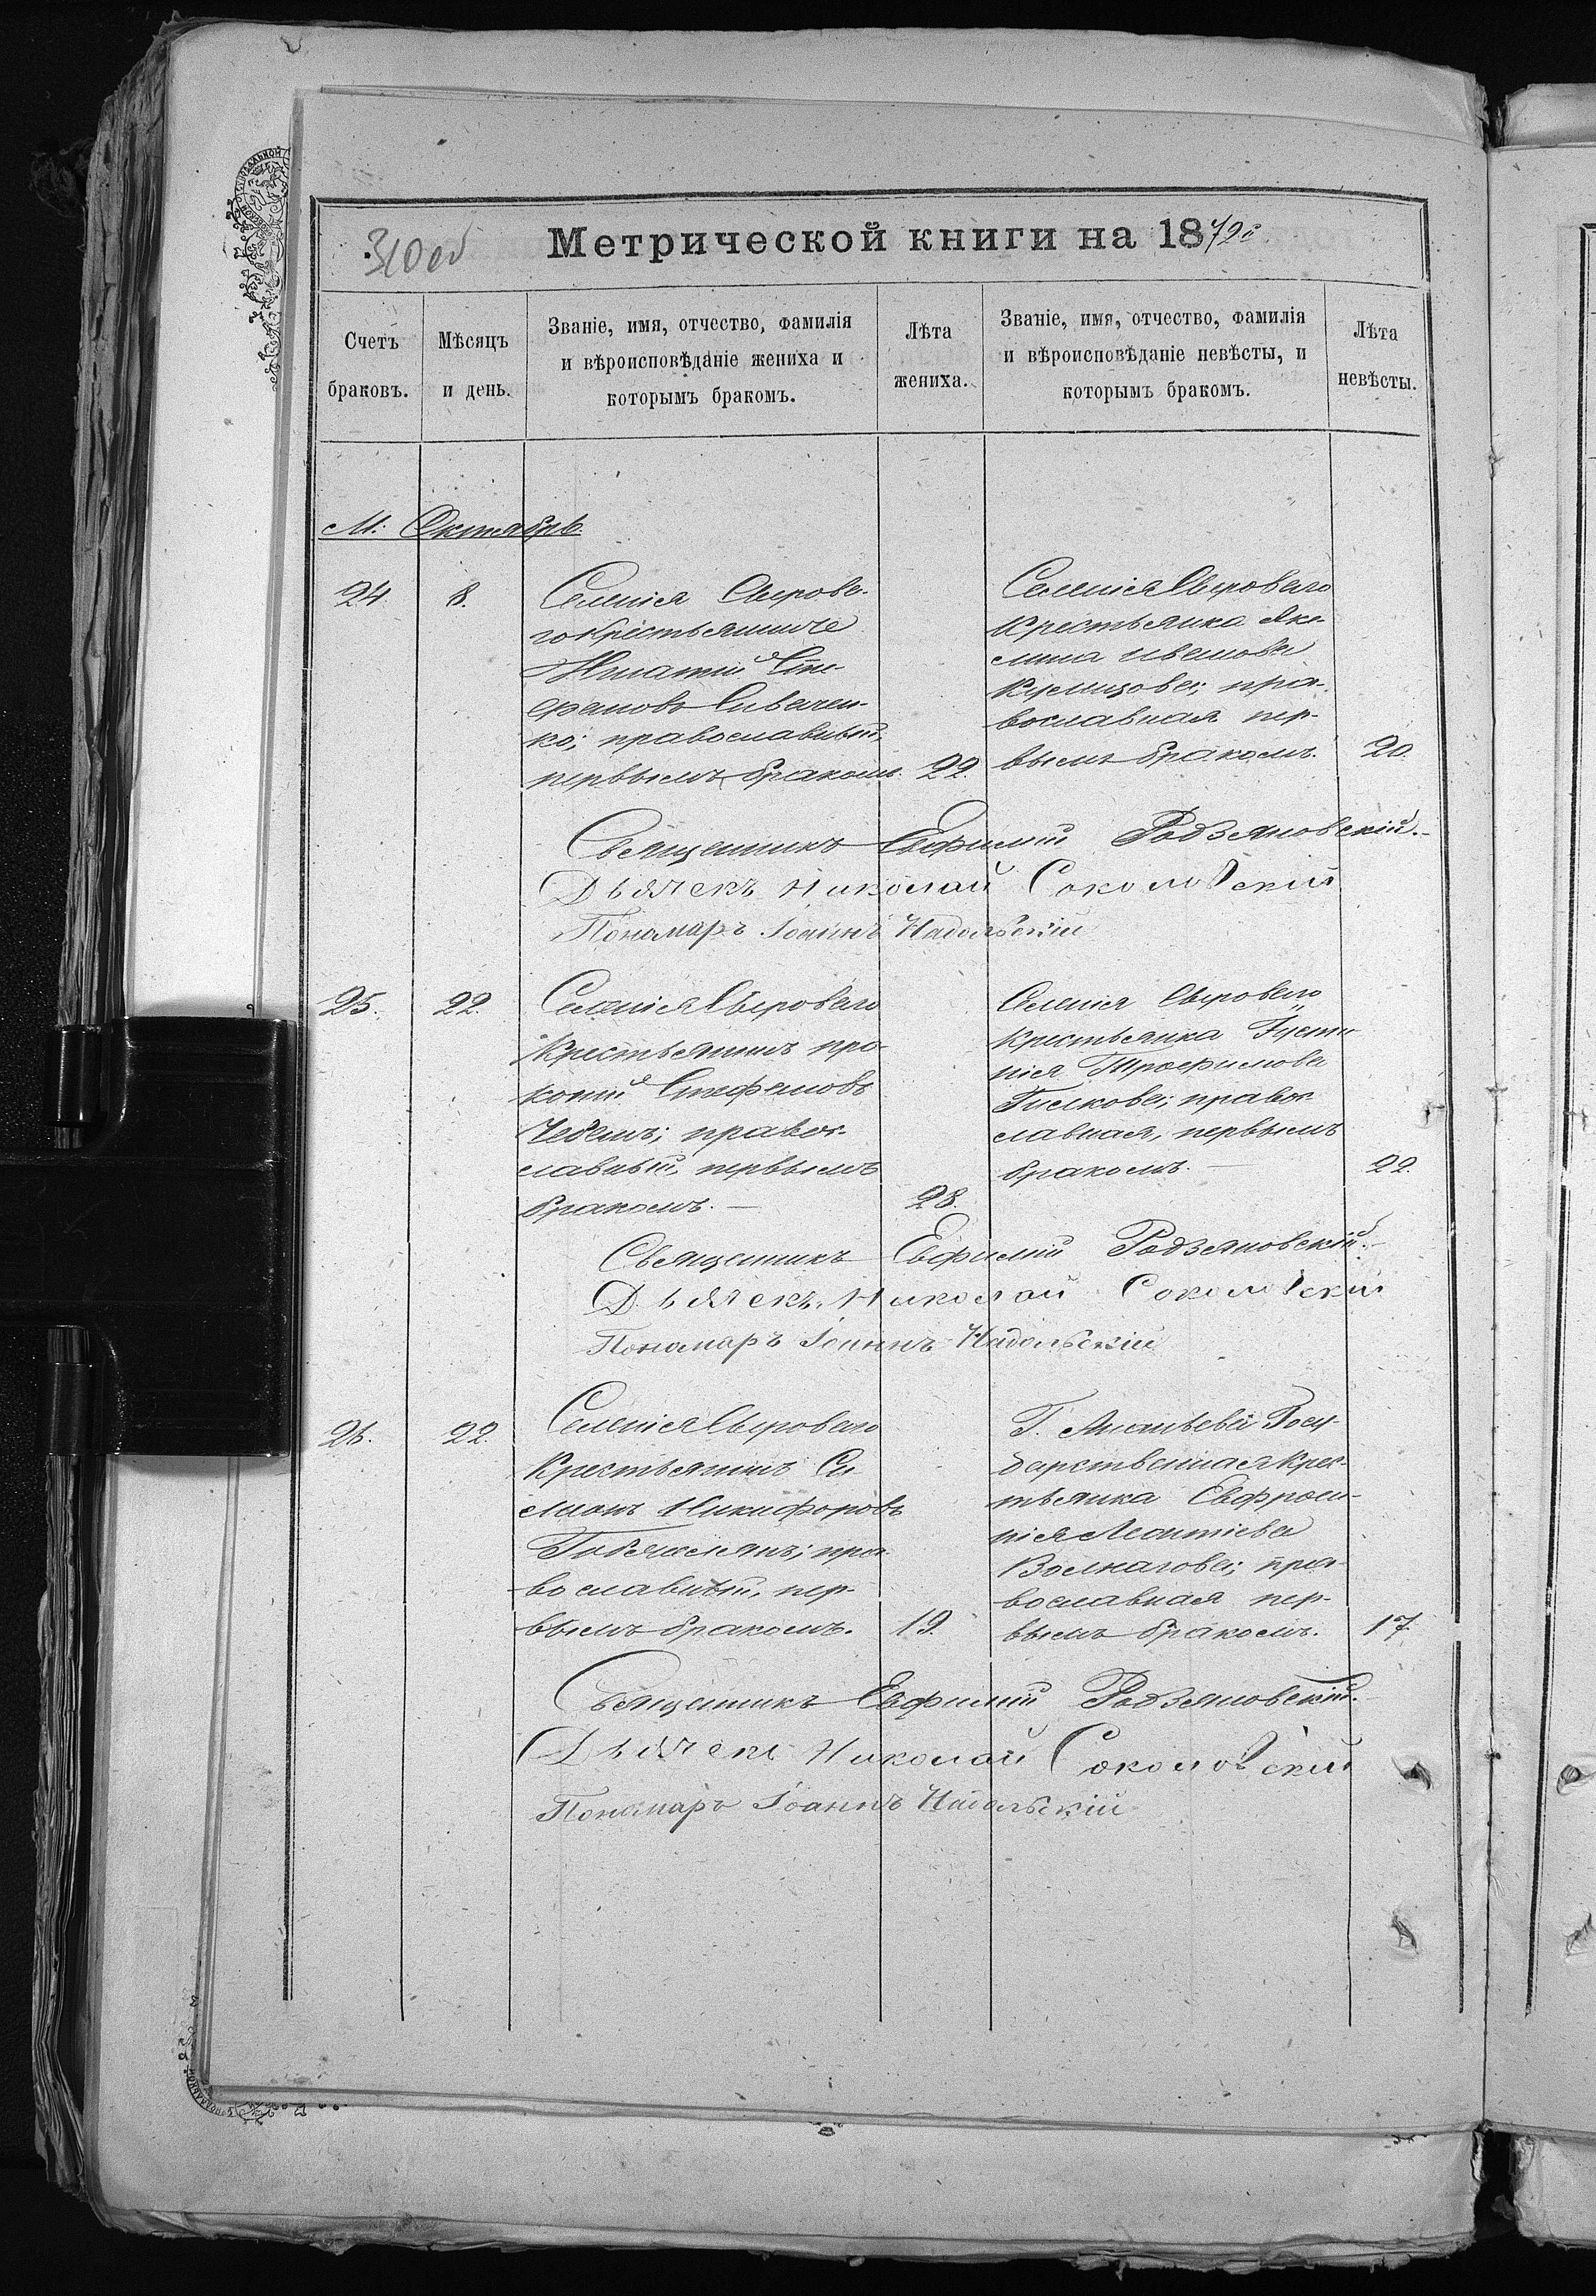 310 об
Метрической книги на 1872й
Счетъ браковъ.
Мѣсяцъ и день.
Званіе, имя, отчество, фамилія и вѣроисповѣданіе жениха и которымъ бракомъ.
Лѣта жениха.
Званіе, имя, отчество, фамилія и вѣроисповѣданіе невѣсты, и которымъ бракомъ.
Лѣта невѣсты.
М: Октябрь.
24.
8.
Селенія Сырова-
го крестьянинъ
Игнатій Сте-
фановъ Сивачен-
ко; православный,
первымъ бракомъ.
22.
Селенія Сыроваго
крестьянка Аки-
лина Иванова
; пра-
вославная пер-
вымъ бракомъ.
20.
Священникъ Евфимій Родзяновскій.
Дьячекъ Николай Соколовскій
Пономарь Іоаннъ Надольскій
25.
22.
Селенія Сыроваго
крестьянинъ Про-
копій Стефановъ
Чебанъ; правос-
лавный, первымъ
бракомъ. —
28.
Селенія Сыроваго
крестьянка Густи-
нія Трофимова
; правос-
лавная, первымъ
бракомъ. —
22.
Священникъ Евфимій Родзяновскій.
Дьячекъ Николай Соколовскій
Пономарь Іоаннъ Надольскій
26.
22.
Селенія Сыроваго
крестьянинъ Си-
меонъ Никифоровъ
; пра-
вославный, пер-
вымъ бракомъ.
19.
Г. Ананьева Госу-
дарственная крес-
тьянка Евфроси-
нія Леонтіева
; пра-
вославная пер-
вымъ бракомъ.
17.
Священникъ Евфимій Родзяновскій.
Дьячекъ Николай Соколовскій
Пономарь Іоаннъ Надольскій